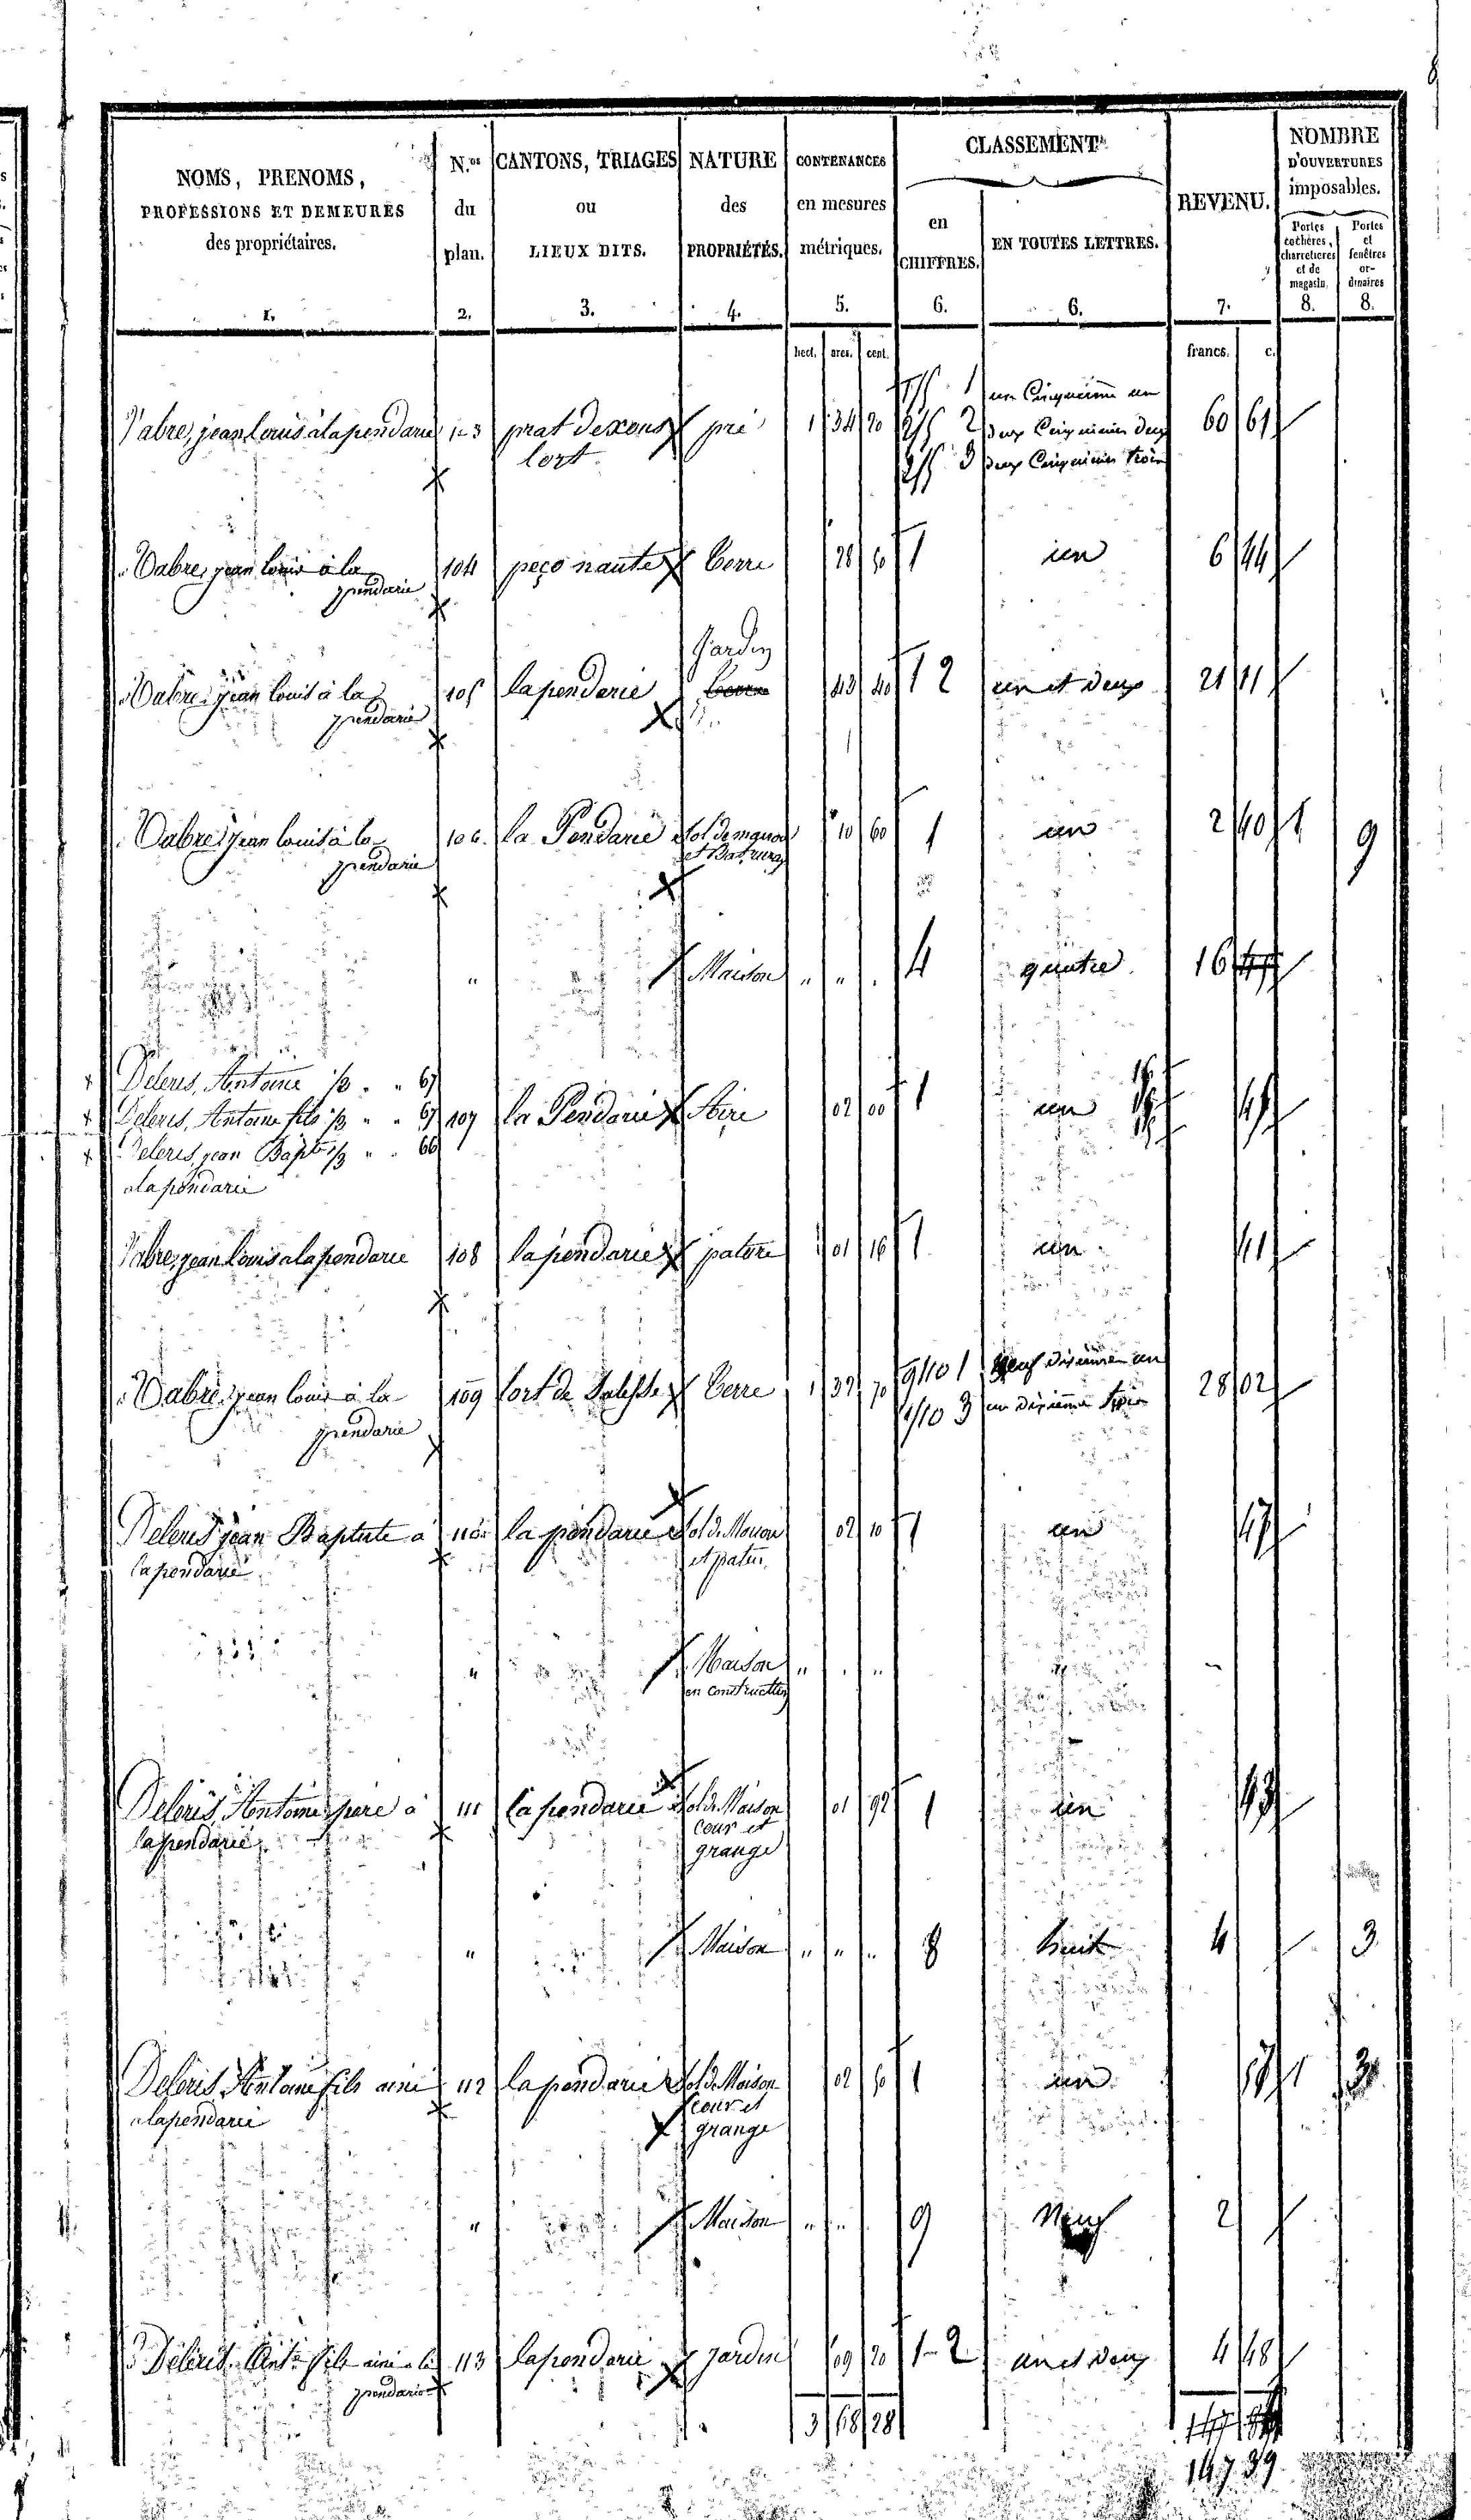 8
NOMS, PRENOMS,
PROFESSIONS ET DEMEURES
des propriétaires.
1.
N.os
du
plan.
2.
CANTONS, TRIAGES
ou
LIEUX DITS.
3.
NATURE
des
PROPRIÉTÉS.
4.
CONTENANCES
en mesures
métriques.
5.
CLASSEMENT
en
CHIFFRES.
6.
EN TOUTES LETTRES.
6.
REVENU.
7.
NOMBRE
D'OUVERTURES
imposables.
Portes
cochères,
charretieres
et de
magasin.
8.
Portes
et
fenêtres
or-
dinaires
8.
hect. ares. cent. francs. c.
1 un Cinquieme un
Vabre, jean Louis à la pendarie pré 1 34 70 2 deux Cinquiemes deux 60 61
lort 3 deux Cinquiemes trois
Vabre, jean louis à la 104 terre 28 50 1 un 6 44
pendarie
Jardin
Vabre, jean louis à la 105 la pendarie terre 43 40 1 2 un et deux 21 11
pendarie
Vabre, jean louis à la 106 la Pendarie Sol de maison 10 60 1 un 2 40 1 9
pendarie
" Maison " " 4 quatre 16
Deleris, Antoine 1/3 " 67
Deleris, Antoine fils 1/3 " " 67 107 la Pendarie 02 00 1 un
Deleris, jean Bapte 1/3 " " 66
a la pendarie
Vabre, jean Louis a la pendarie 108 la pendarie pature 01 16 1 un 41
Vabre, jean louis à la 109 terre 1 37 70 9/10 1 Neuf dixiemes un 28 02
pendarie 1/10 3 un dixieme trois
Deleris jean Baptiste a 110 la pendarie Sol de Maison 02 10 1 un
la pendarie et patus.
" Maison " "
en construction
Deleris, Antoine pere a 111 la pendarie Sol de Maison 01 92 1 un
la pendarie cour et
grange
" Maison " " " 8 huit 4 3
Deleris Antoine fils ainé 112 la pendarie Sol de Maison 02 50 1 un 1
a la pendarie cour et
grange
" Maison " " 9 Neuf 2
Deleris, Ante fils ainé a la 113 la pendarie jardin 09 20 1-2 un et deux 4 48
pendarie
3 68 28
147 39